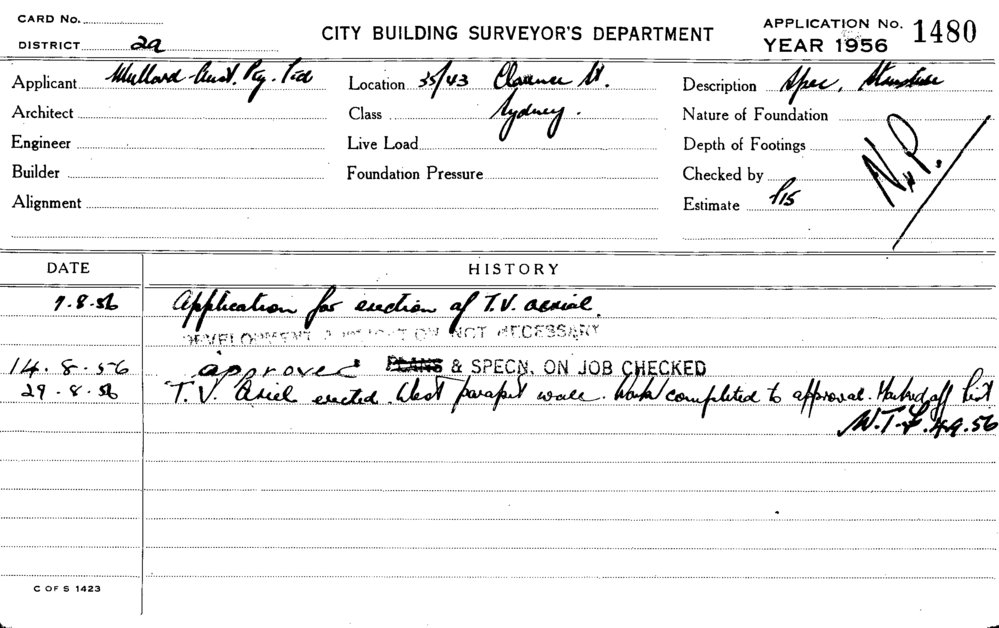 CARD No.
CITY BUILDING SURVEYOR'S DEPARTMENT
APPLICATION No. 1480
DISTRICT 2a
YEAR 1956
Applicant Mullard Aust. Pty. Ltd
Location 35/43 Clarence St.
Description Spec,
Architect
Class Sydney.
Nature of Foundation
Engineer
Live Load
Depth of Footings
Builder
Foundation Pressure
Checked by N.P.
Alignment
Estimate £15
DATE HISTORY
7.8.56 Application for erection of T.V. aerial.
DEVELOPMENT APPLICATION NOT NECESSARY
14.8.56 approved PLANS & SPECN. ON JOB CHECKED
29.8.56 T.V. Ariel erected West parapet wall. Work completed to approval. Marked off list
W.T.F. 4.9.56
C OF S 1423